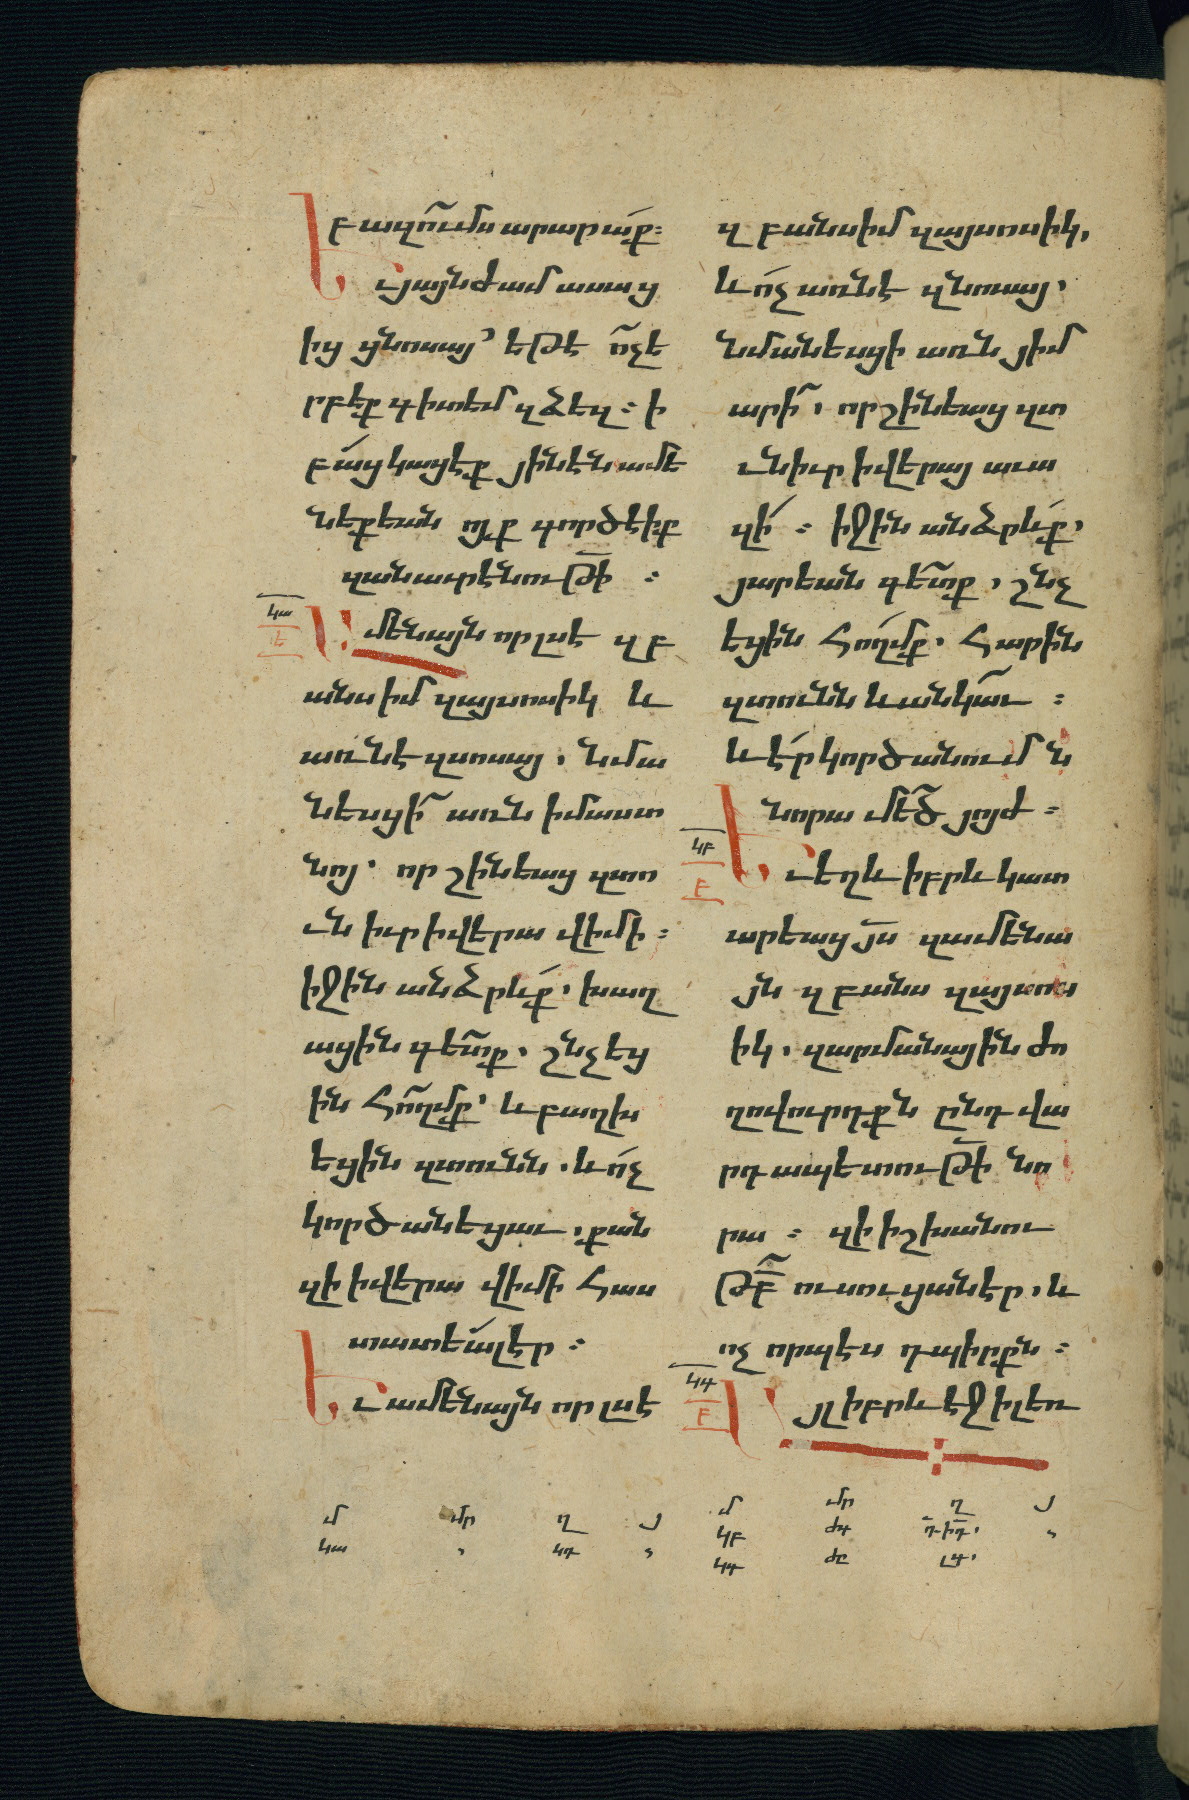 բազումս արարաք։
Եւ յայնժամ ասաց
ից ցնոսայ՝ եթէ ոչ ե
րբեք գիտեմ զձեզ։ ի
բաց կացէք յինէն ամե
նեքեան ոյք գործէիք
զանաւրէնութի ։
կա
Ամենայն որ լսէ զբ
անս իմ զայսոսիկ և
առնէ զսոսայ, նմա
նեսցի առն իմաստ
նոյ՝ որ շինեաց զտո
ւն իւր ի վերա վիմի։
իջին անձրևք, խաղ
ացին գետք, շնչեց
ին հողմք՝ և բաղխ
եցին զտունն, և ոչ
կործանեցաւ, քան
զի ի վերա վիմի հաս
տատեալ էր։
Եւ ամենայն որ լսէ
զբանս իմ զայսոսիկ,
և ոչ առնէ զնոսայ՝
նմանեսցի առն յիմ
արի, որ շինեաց զտ
ւն իւր ի վերայ աւա
զի ։ իջին անձրևք,
յարեան գետք, շնչ
եցին հողմք, հարին
զտունն և անկաւ ։
և էր կործանումն
նորա մեծ յոյժ ։
կբ
բ
Եւ եղև իբրև կատ
արեաց յս զամենա
յն զբանս զայսոս
իկ, զարմանային ժո
ղովուրդքն ընդ վա
րդապետութի նո
րա ։ զի իշխանու
թբ ուսուցանէր, և
ոչ որպէս դպիրքն ։
կգ
բ
Այլ իբրև էջ ի լեռ
մ մր ղ յ
կա կդ
մ մր ղ յ
կբ ժգ
կգ ժը լգ